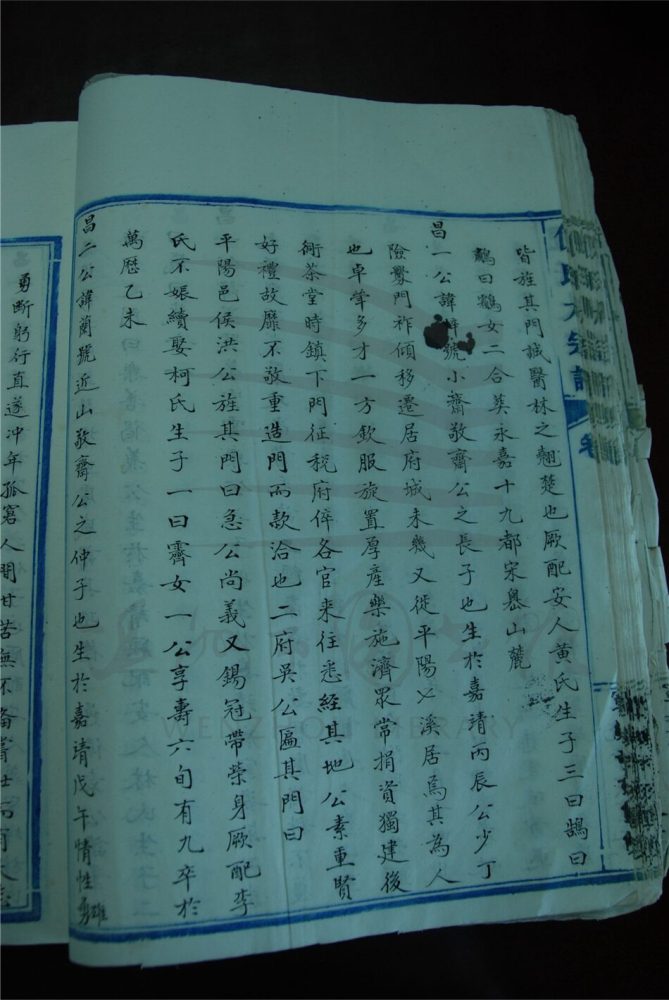 皆旌其門誠醫林之翹楚也厥配安人黃氏生子三曰鵠曰
曰鶴女二合葵永嘉十九都宋嶴山麓
昌一公諱號小齋敬齋公之長子也生於嘉靖丙辰公少丁
險釁門祚傾移遷居府城未幾又徙平陽溪居焉其為人
也卓犖多才一方欽服旋置厚產樂施濟眾常捐資獨建後
衕茶堂時鎮下門征稅府倅各官來往悉經其地公素重賢
好禮故靡不敬重造門而款洽也二府吳公匾其門曰
平陽邑侯洪公旌其門曰急公尚義又錫冠帶榮身厥配李
氏不娠續娶柯氏生子一曰霽女一公享壽六旬有九卒於
萬歷乙未
昌二公諱蘭號近山敬齋公之仲子也生於嘉靖戊午情性勇雄
勇斷躬行直遂冲年孤窘人間甘苦無不備嘗
WENZHOU LIBRARY